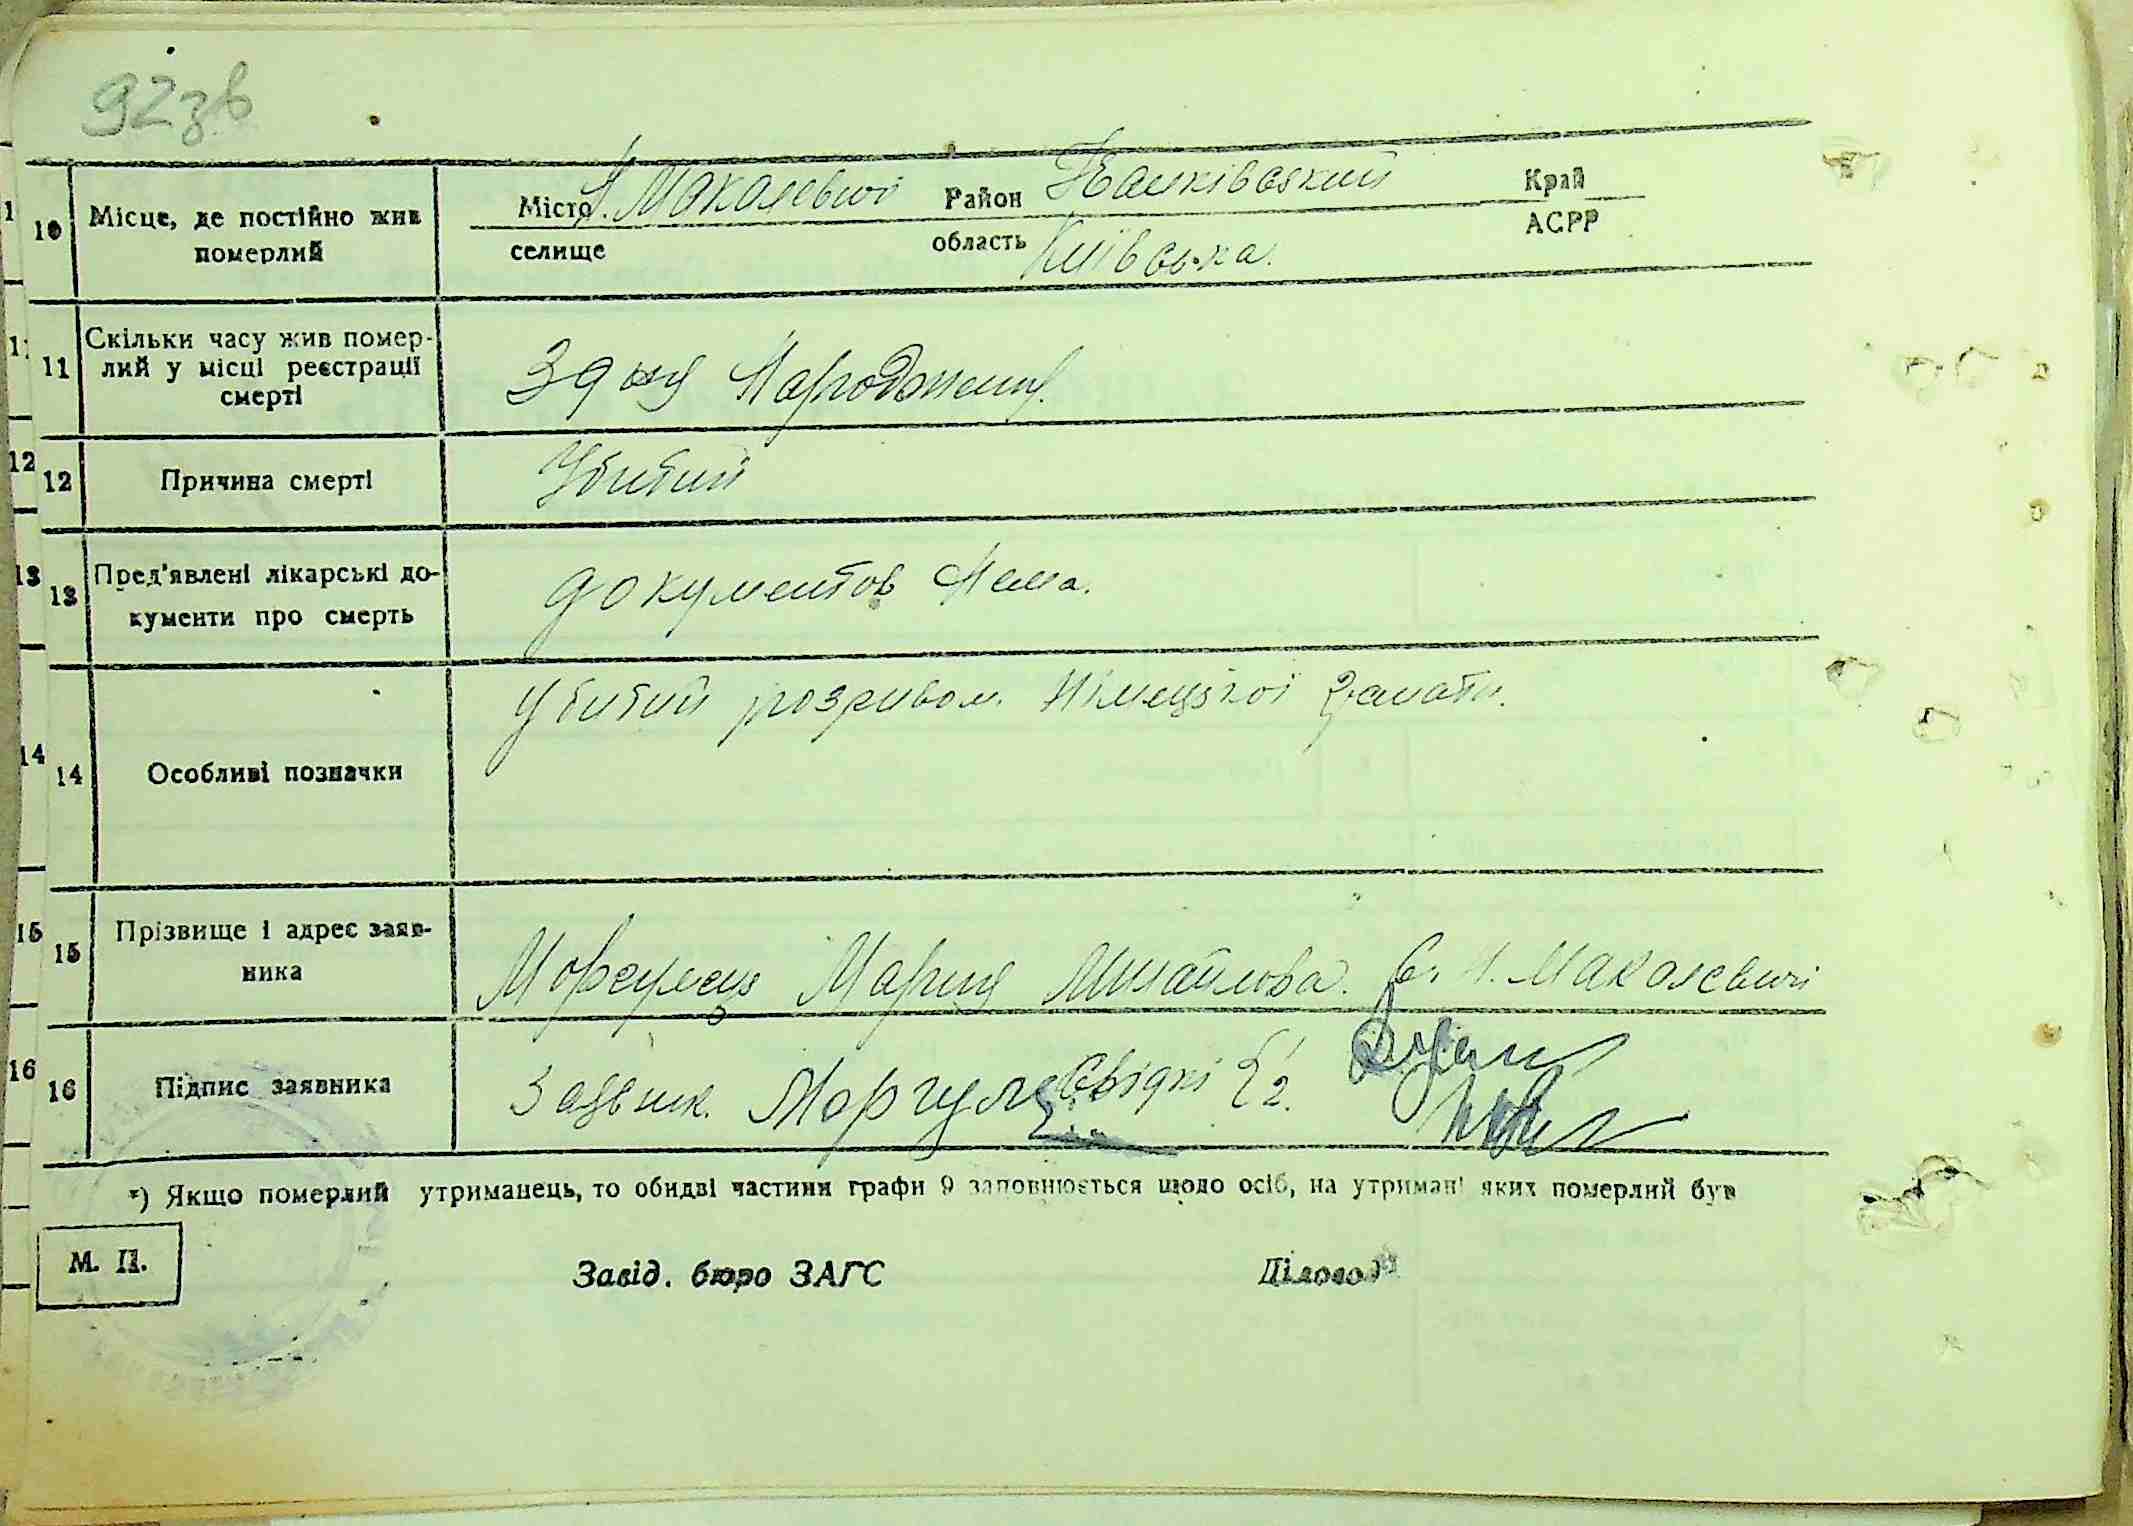 92зв
10 Місце, де постійно жив померлий
Місто Н. Макалевичі Район Іванківський Край
селище область Київська. АСРР
11 Скільки часу жив помер-
лий у місці реєстрації
смерті
З дня Народження.
12 Причина смерті Убитий
13 Пред'явлені лікарські до-
кументи про смерть
документов Нема.
14 Особливі позначки
Убитий розривом Німецької Гранати.
15 Прізвище і адрес заяв-
ника
Моргулець Мария Михайловна. С. Н. Макалевичі
16 Підпис заявника Заявник. Моргулец Свідкі 1 2.
*) Якщо померлий утриманець, то обидві частини графи 9 заповнюється щодо осіб, на утримані яких померлий був
М. П.
Завід. бюро ЗАГС Діловод